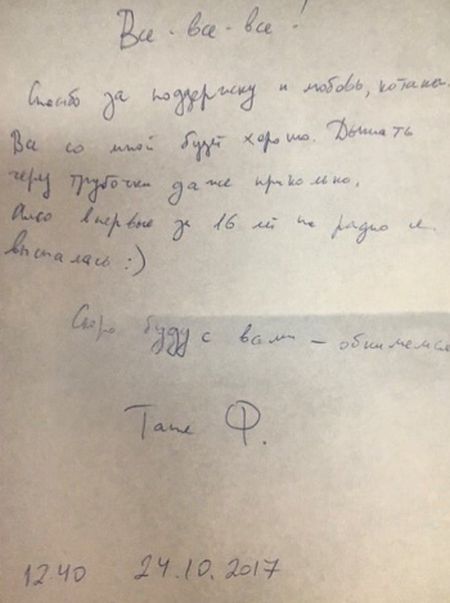 Все-все-все!
Спасибо за поддержку и любовь, котаны.
Все со мной будет хорошо. Дышать
через трубочки даже прикольно.
Алсо впервые за 16 лет на радио я
выспалась :)
Скоро буду с вами – обнимемся
Таня Ф.
12.40 24.10.2017